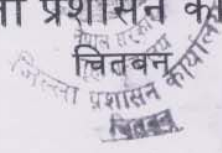 प्रशासन का
चितवन
नेपाल सरकार
जिल्ला प्रशासन कार्यालय
चितवन